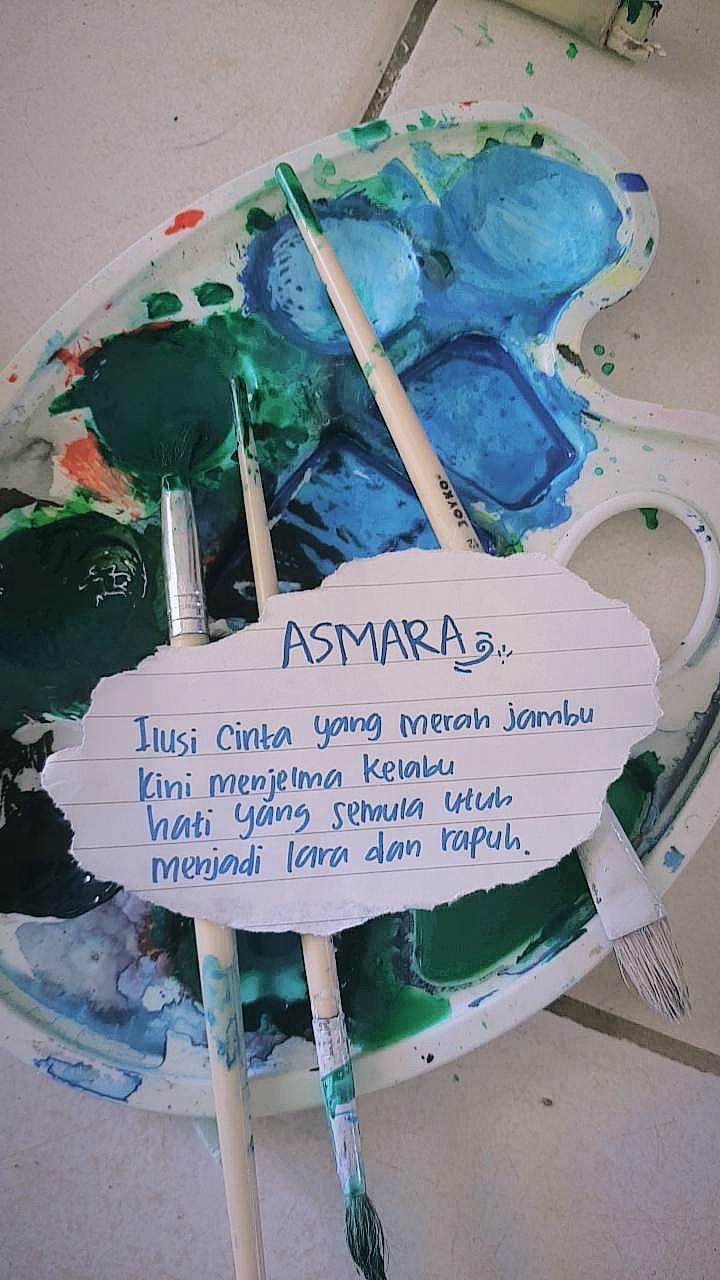 JOYKO
ASMARA
Ilusi cinta yang merah jambu
kini menjelma kelabu
hati yang semula utuh
menjadi lara dan rapuh.